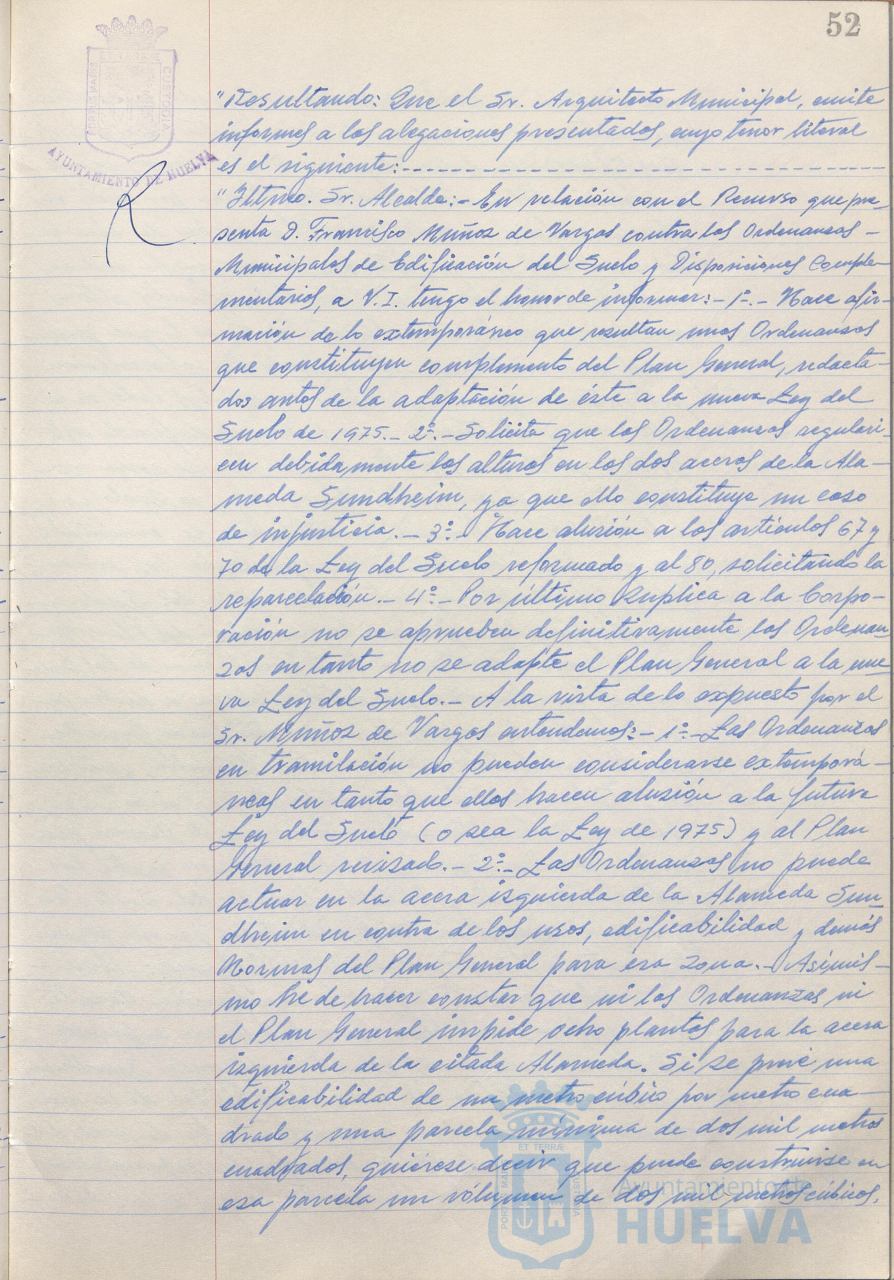 52
PORTUS MARIS ET TERRAE CUSTODIA
AYUNTAMIENTO DE HUELVA
"Resultando: Que el Sr. Arquitecto Municipal, emite
informes a las alegaciones presentadas, cuyo tenor literal
es el siguiente:----------------------------
"Iltmo. Sr. Alcalde:- En relación con el Recurso que pre-
senta D. Francisco Muñoz de Vargas contra las Ordenanzas -
Municipales de Edificación del Suelo y Disposiciones Comple-
mentarias, a V.I. tengo el honor de informar:- 1º.- Hace afir-
mación de lo extemporáneo que resultan unas Ordenanzas
que constituyen complemento del Plan General, redacta-
das antes de la adaptación de éste a la nueva Ley del
Suelo de 1975.- 2º.- Solicita que las Ordenanzas regulari-
cen debidamente las alturas en las dos aceras de la Ala-
meda Sundheim, ya que ello constituye un caso
de injusticia.- 3º.- Hace alusión a los artículos 67 y
70 de la Ley del Suelo reformado y al 80, solicitando la
reparcelación.- 4º.- Por último suplica a la Corpo-
ración no se aprueben definitivamente las Ordenan-
zas en tanto no se adapte el Plan General a la nue-
va Ley del Suelo.- A la vista de lo expuesto por el
Sr. Muñoz de Vargas entendemos:- 1º.- Las Ordenanzas
en tramitación no pueden considerarse extemporá-
neas en tanto que ellas hacen alusión a la futura
Ley del Suelo (o sea la Ley de 1975) y al Plan
General revisado.- 2º.- Las Ordenanzas no puede
actuar en la acera izquierda de la Alameda Sun-
dheim en contra de los usos, edificabilidad y demás
Normas del Plan General para esa zona.- Asimis-
mo he de hacer constar que ni las Ordenanzas ni
el Plan General impide ocho plantas para la acera
izquierda de la citada Alameda. Si se prevé una
edificabilidad de un metro cúbico por metro cua-
drado y una parcela mínima de dos mil metros
cuadrados, quiérese decir que puede construirse en
esa parcela un volumen de dos mil metros cúbicos,
Ayuntamiento de
HUELVA